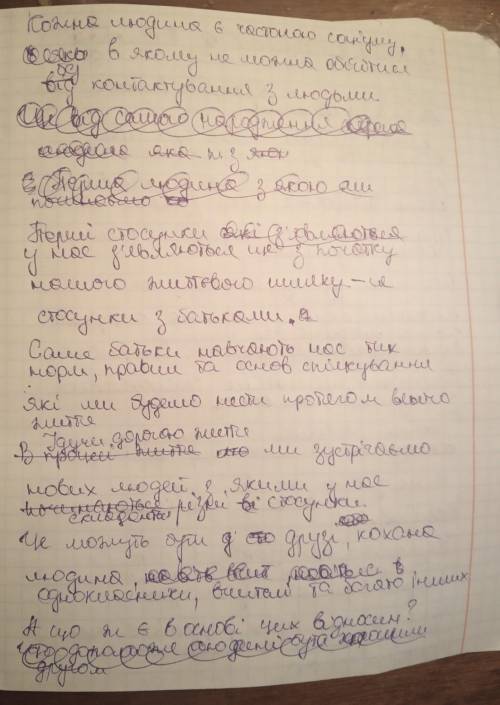 Кожна людина є частиною соціуму,
в якому не можна обійтися
без контактування з людьми.
Ще від самого народження
Перша людина з якою ми
Перші стосунки які з'являються
у нас з'являються ще з початку
нашого життєвого шляху – це
стосунки з батьками.
Саме батьки навчають нас тих
норм, правил та основ спілкування
які ми будемо нести протягом всього
життя
Ідучи дорогою життя
В процесі життя ми зустрічаємо
нових людей з якими у нас
складаються різні стосунки.
Це можуть бути друзі, кохана
людина,
однокласники, вчителі та багато інших
А що ж є в основі цих відносин?
другом